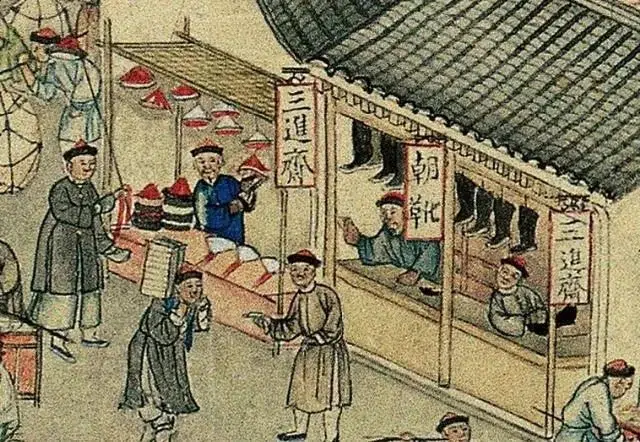 三進齋
朝靴
三進齋